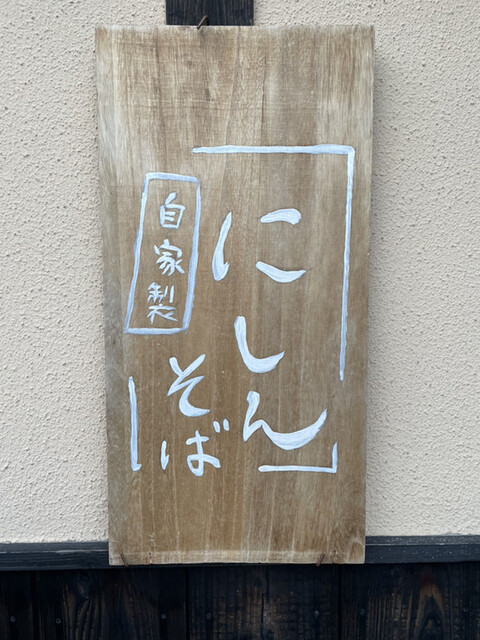 にしん
自家製
そば